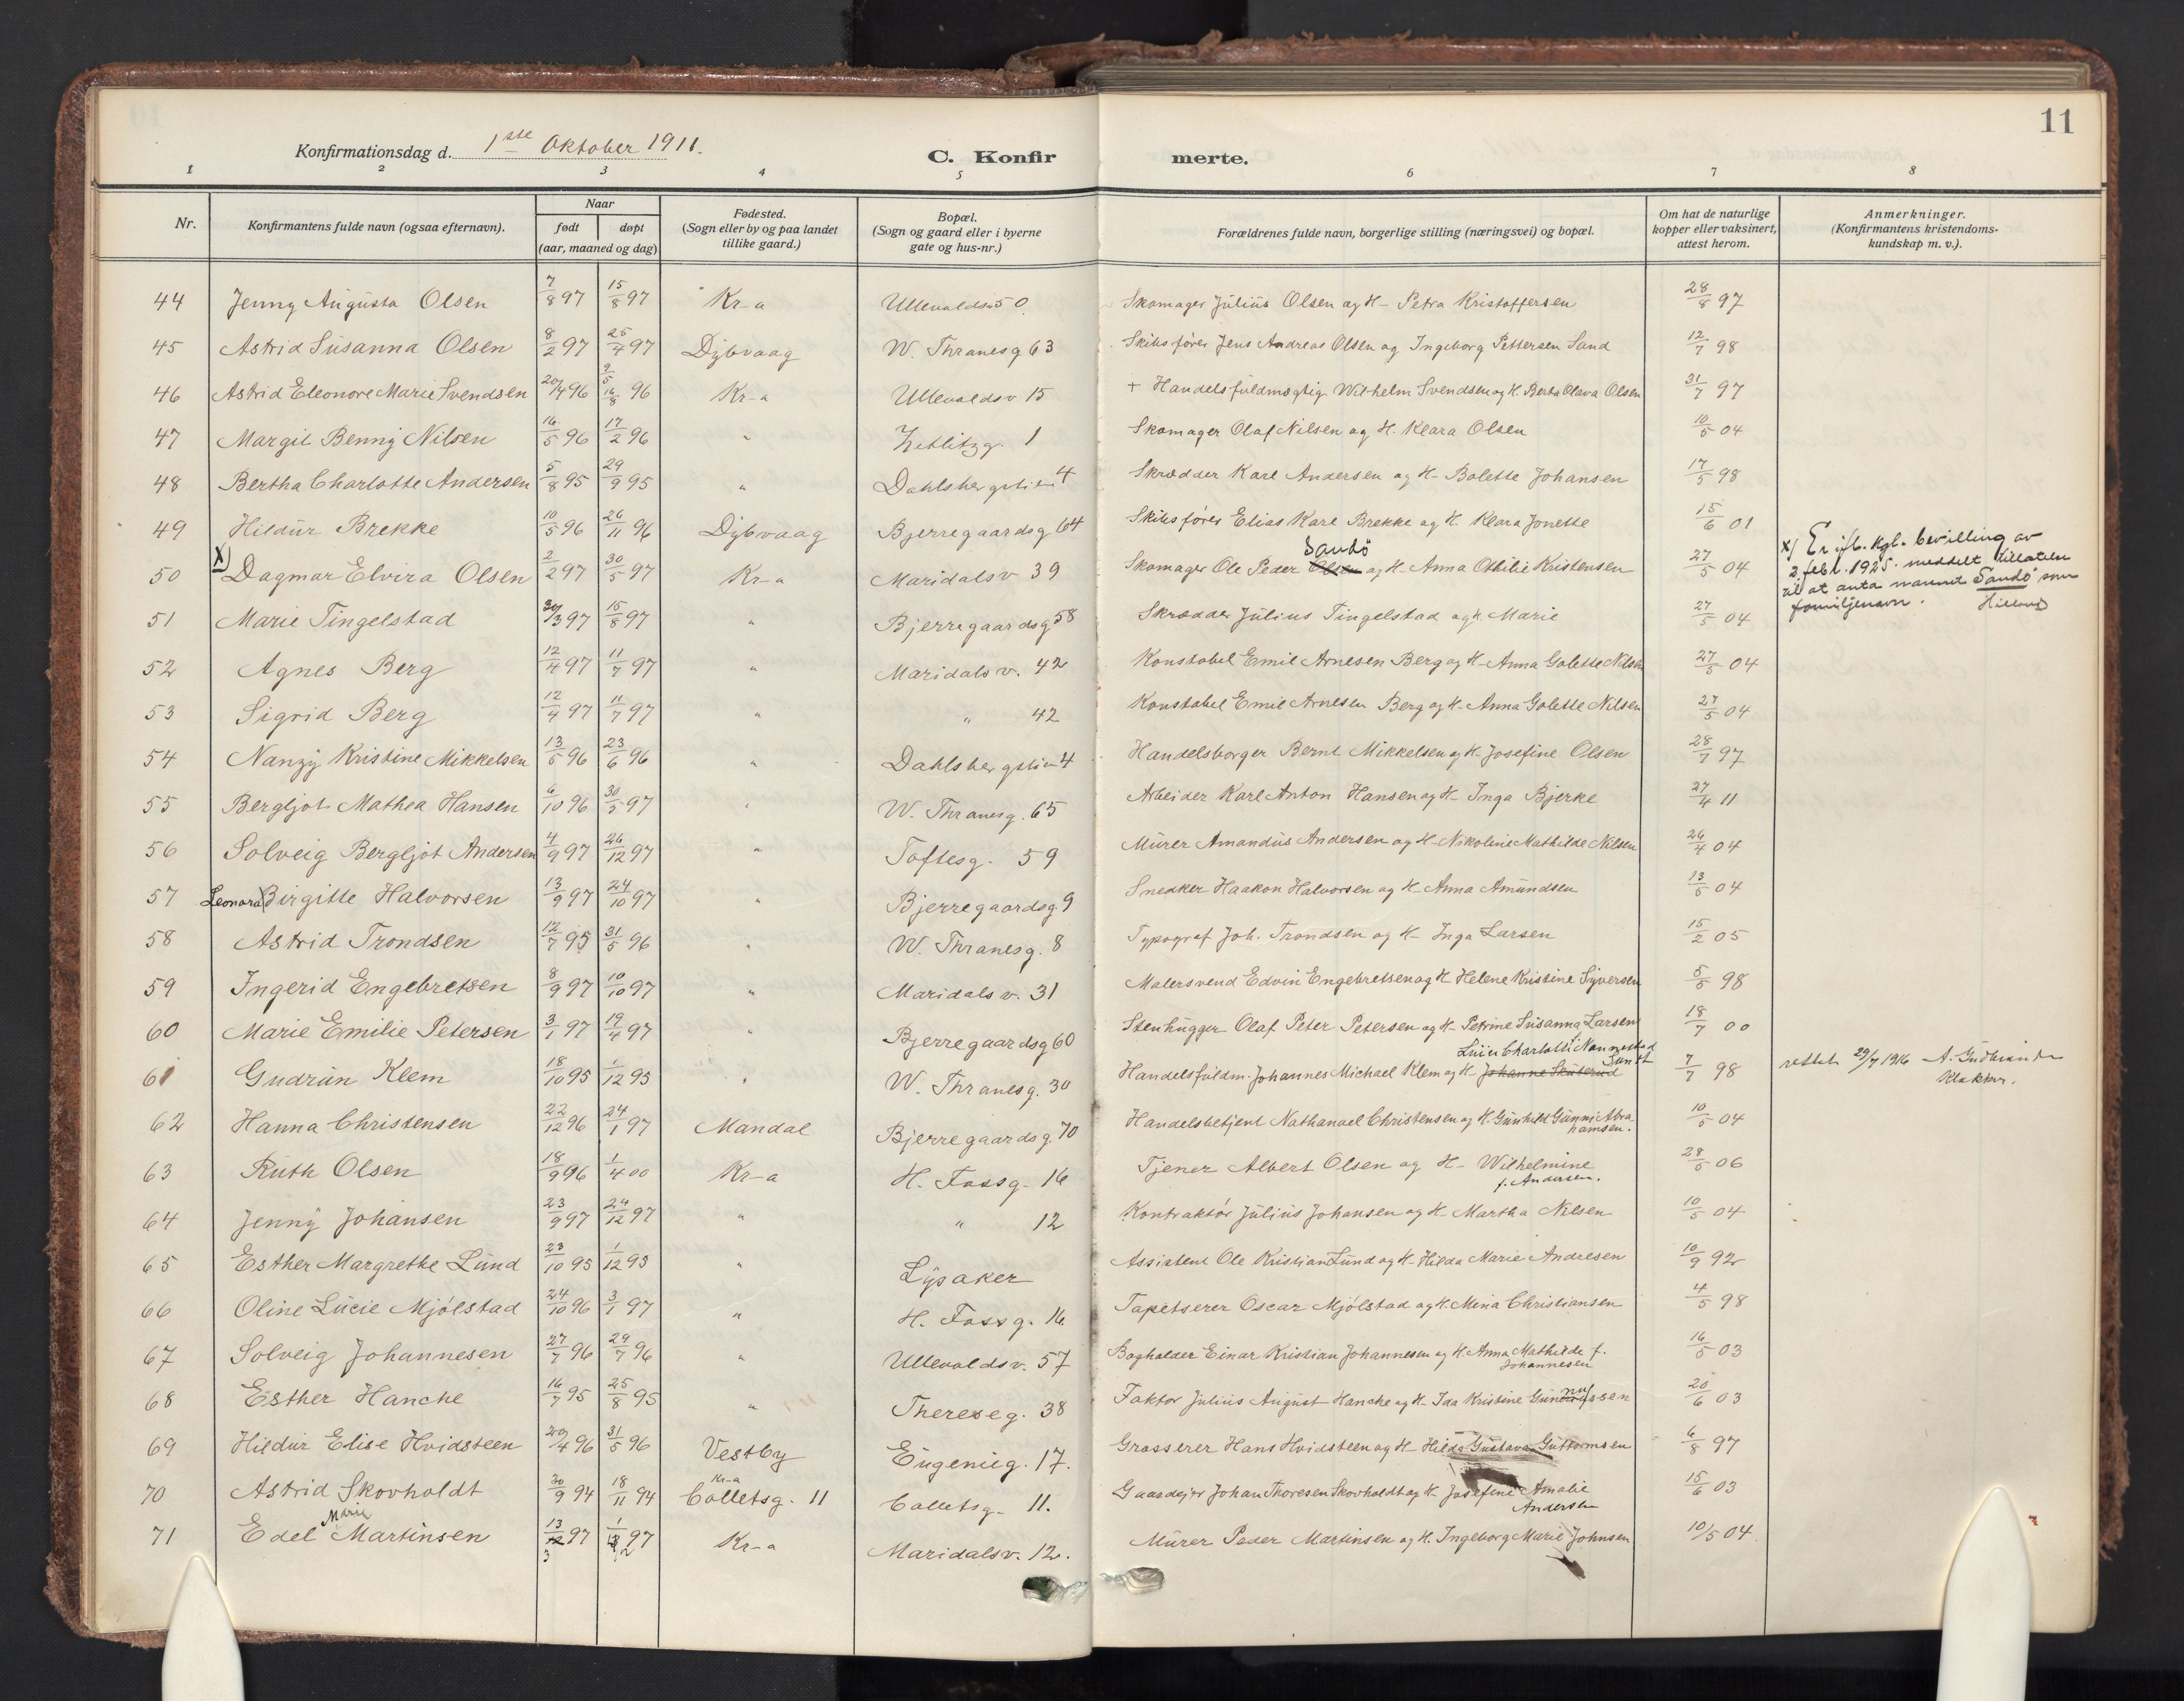 11
Konfirmationsdag d. 1ste Oktober 1911.
C. Konfir merte.
1 2 3 4 5 6 7 8
Nr. Konfirmantens fulde navn (ogsaa efternavn). Naar født døpt (aar, maaned og dag) Fødested. (Sogn eller by og paa landet tillike gaard.) Bopæl. (Sogn og gaard eller i byerne gate og hus-nr.) Forældrenes fulde navn, borgerlige stilling (næringsvei) og bopæl. Om hat de naturlige kopper eller vaksinert, attest herom. Anmerkninger. (Konfirmantens kristendoms-kundskap m. v.).
44 Jenny Augusta Olsen 7/8 97 15/8 97 Kr-a Ullevaldsv 50 Skomager Julius Olsen og H- Petra Kristoffersen 28/8 97
45 Astrid Susanna Olsen 8/2 97 25/4 97 Dybvaag W. Thranesg 63 Skibsfører Jens Andreas Olsen og Ingeborg Pettersen Sand 12/7 98
46 Astrid Eleonore Marie Svendsen 20/4 96 16/8 96 Kr-a Ullevaldsv 15 + Handelsfuldmægtig Wilhelm Svendsen og H. Berta Olava Olsen 31/7 97
47 Margit Benny Nilsen 16/5 96 17/2 96 " Zetlitzg. 1 Skomager Olaf Nilsen og H. Klara Olsen 10/5 04
48 Bertha Charlotte Andersen 5/8 95 29/9 95 " Dahlsbergstien 4 Skrædder Karl Andersen og H- Bolette Johansen 17/5 98
49 Hildur Brekke 10/5 96 26/11 96 Dybvaag Bjerregaardsg 64 Skibsfører Elias Karl Brekke og H. Klara Jonette 15/6 01
50 x) Dagmar Elvira Olsen 2/2 97 30/5 97 Kr-a Maridalsv 39 Skomager Ole Peder Olsen Sandö og H- Anna Othilie Kristensen 27/5 04 x) Er ifl. kgl. bevilling av
2. febr. 1925. meddelt tillatelse
til at anta navnet Sandö som
familjenavn.
51 Marie Tingelstad 30/3 97 15/8 97 " Bjerregaardsg 58 Skrædder Julius Tingelstad og H. Marie 27/5 04
52 Agnes Berg 12/4 97 11/7 97 " Maridalsv. 42 Konstabel Emil Arnesen Berg og H- Anna Golette Nilsen 27/5 04
53 Sigrid Berg 12/4 97 11/7 97 " " 42 Konstabel Emil Arnesen Berg og H- Anna Golette Nilsen 27/5 04
54 Nanzy Kristine Mikkelsen 13/5 96 23/6 96 " Dahlsbergstien 4 Handelsborger Bernt Mikkelsen og H- Josefine Olsen 28/7 97
55 Bergljot Mathea Hansen 6/10 96 30/5 97 " W. Thranesg. 65 Arbeider Karl Anton Hansen og H- Inga Bjerke 27/4 11
56 Solveig Bergljot Andersen 4/9 97 26/12 97 " Toftesg. 59 Murer Amandus Andersen og H- Nikoline Mathilde Nilsen 26/4 04
57 Leonora Birgitte Halvorsen 13/9 97 24/10 97 " Bjerregaardsg. 9 Snedker Haakon Halvorsen og H- Anna Amundsen 13/5 04
58 Astrid Trondsen 12/7 95 31/5 96 " W. Thranesg. 8 Typograf Joh. Trondsen og H- Inga Larsen 15/2 05
59 Ingerid Engebretsen 8/9 97 10/10 97 " Maridalsv. 31 Malersvend Edvin Engebretsen og H- Helene Kristine Syversen 5/5 98
60 Marie Emilie Petersen 3/1 97 19/4 97 " Bjerregaardsg 60 Stenhugger Olaf Peter Petersen og H- Petrine Susanna Larsen 18/7 00
61 Gudrun Klem 18/10 95 1/12 95 " W. Thranesg. 30 Handelsfuldm. Johannes Michael Klem og H- Johanne Skuterud 7/7 98 rettet 29/7 1916 A. Gudbrands
Klokker.
62 Hanna Christensen 22/12 96 24/1 97 Mandal Bjerregaardsg. 70 Handelsbetjent Nathanael Christensen og H. Gunhild Gunni Abrahamsen. 10/5 04
63 Ruth Olsen 18/9 96 1/4 00 Kr-a H. Fossg. 16 Tjener Albert Olsen og H- Wilhelmine f. Andersen. 28/5 06
64 Jenny Johansen 23/9 97 24/12 97 " " 12 Kontraktör Julius Johansen og H Martha Nilsen 10/5 04
65 Esther Margrethe Lund 23/10 95 1/12 95 " Lysaker Assistent Ole Kristian Lund og H- Hilda Marie Andresen 10/9 92
66 Oline Lucie Mjölstad 24/10 96 3/1 97 " H. Fossg. 16 Tapetserer Oscar Mjölstad og H. Mina Christiansen 4/5 98
67 Solveig Johannesen 27/7 96 29/7 96 " Ullevaldsv. 57 Bogholder Einar Kristian Johannesen og H. Anna Mathilde f. Johannesen 16/5 03
68 Esther Hanche 16/7 95 25/8 95 " Thereseg. 38 Faktor Julius August Hanche og H- Ida Kristine Gunnufssen 20/6 03
69 Hildur Elise Hvidsteen 20/4 96 31/5 96 Vestby Eugenieg. 17. Grosserer Hans Hvidsteen og H- Hilda Gustava Guttormsen 6/8 97
70 Astrid Skovholdt 30/9 94 18/11 94 Kr-a Colletsg. 11 Colletsg. 11. Gaardejer Johan Thoresen Skovholdt og H. Josefine Amalie Andersen 15/6 03
71 Edel Marie Martinsen 13/3 97 1/12 97 Kr-a Maridalsv. 12. Murer Peder Martinsen og H. Ingeborg Marie Johnsen 10/5 04.